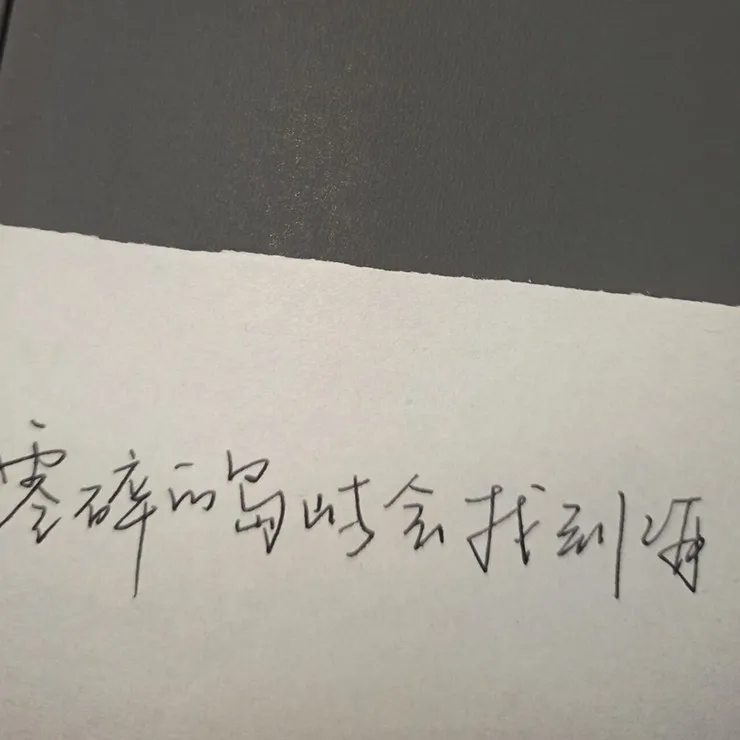 零碎的岛屿会找到海